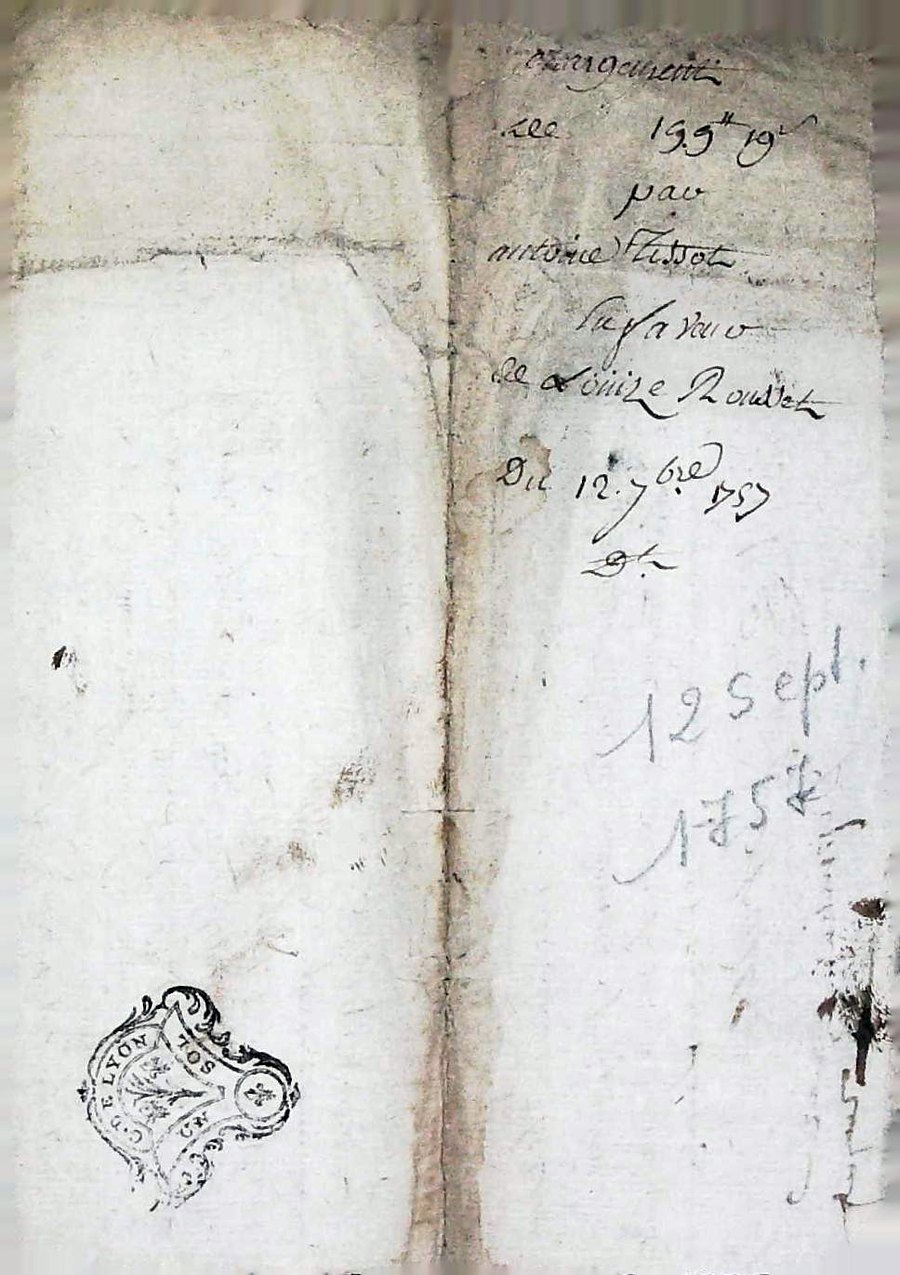 chargement
de 199ᵗᵗ 19ˢ
par
antoine Tissot
En faveur
de Louize Rousset
Du 12. 7bre 1757
Dt.
12 Sept.
1757
G. DE LYON
UN SOL